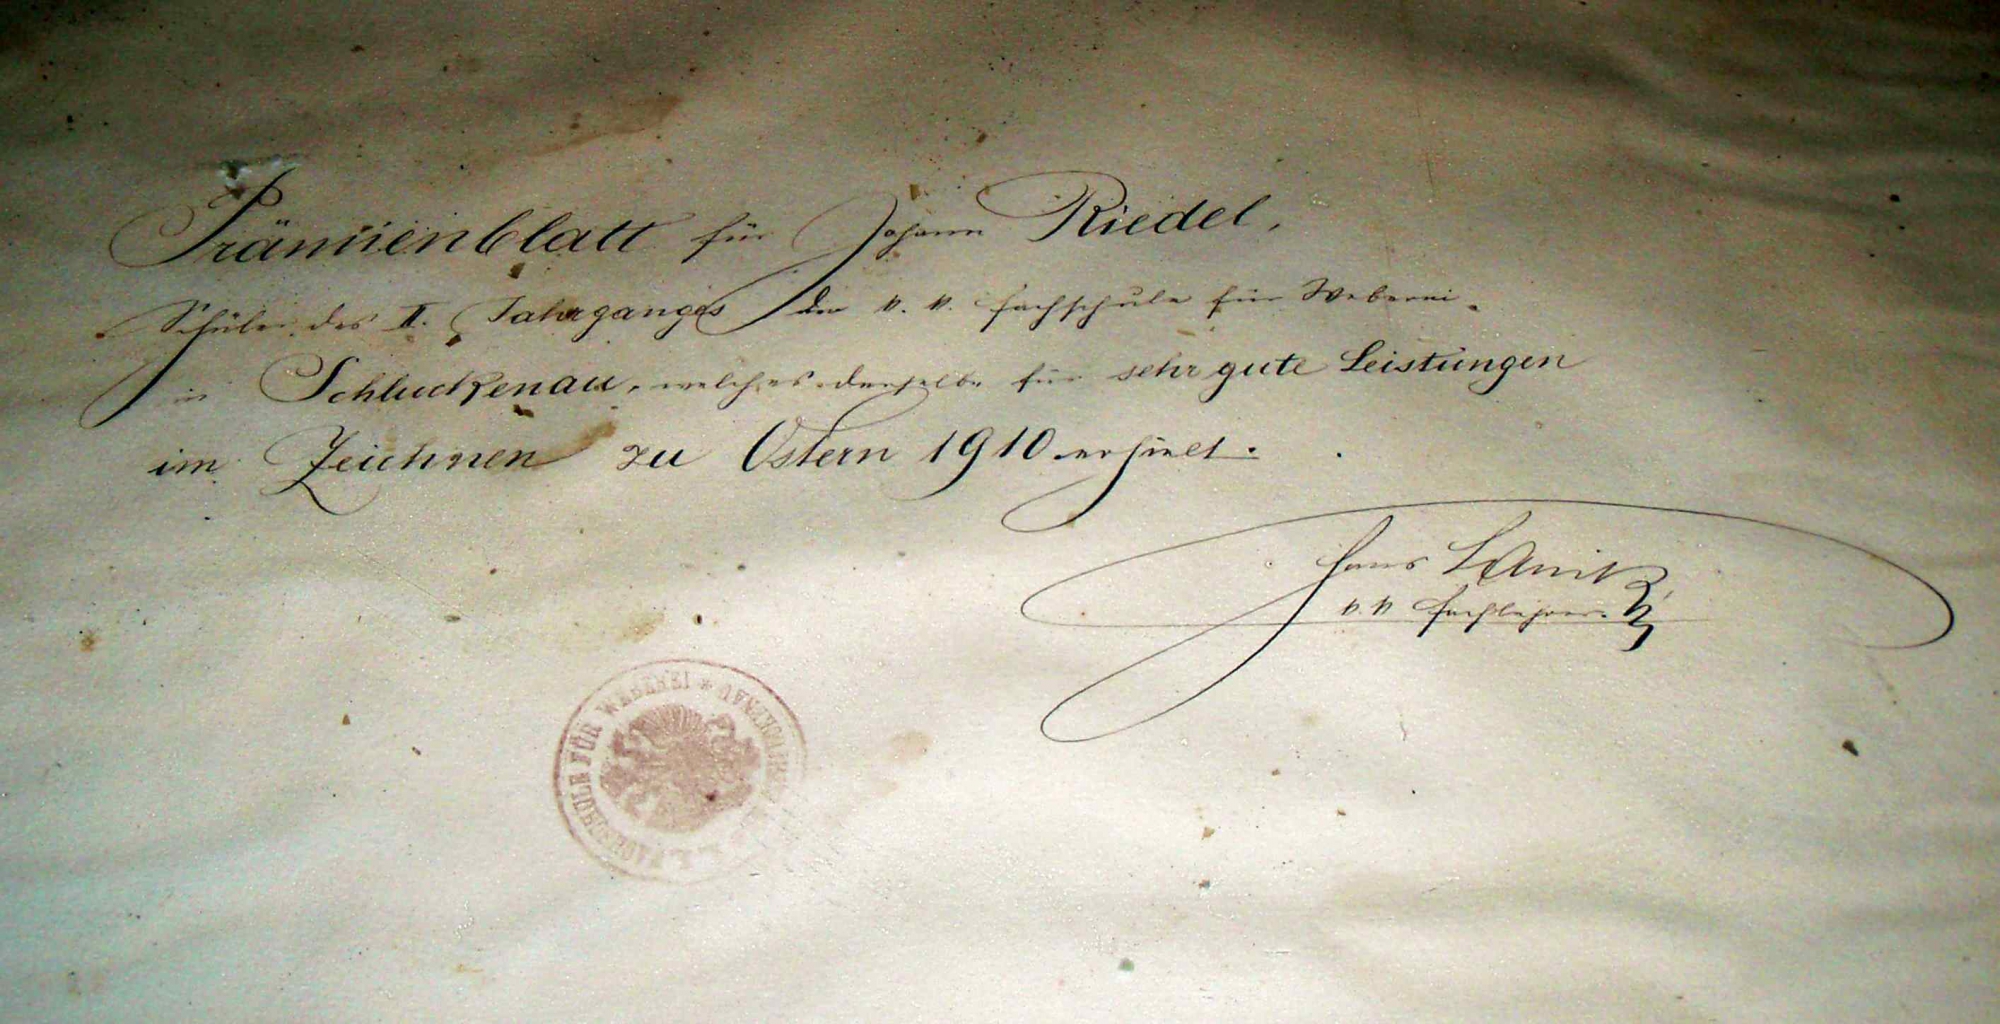 Prämienblatt für Johann Riedel,
Schüler des II. Jahrganges der k. k. Fachschule für Weberei
in Schluckenau, welches derselbe für sehr gute Leistungen
im Zeichnen zu Ostern 1910 erhielt.
Hans
k. k. Fachlehrer.
K. K. FACHSCHULE FÜR WEBEREI * SCHLUCKENAU